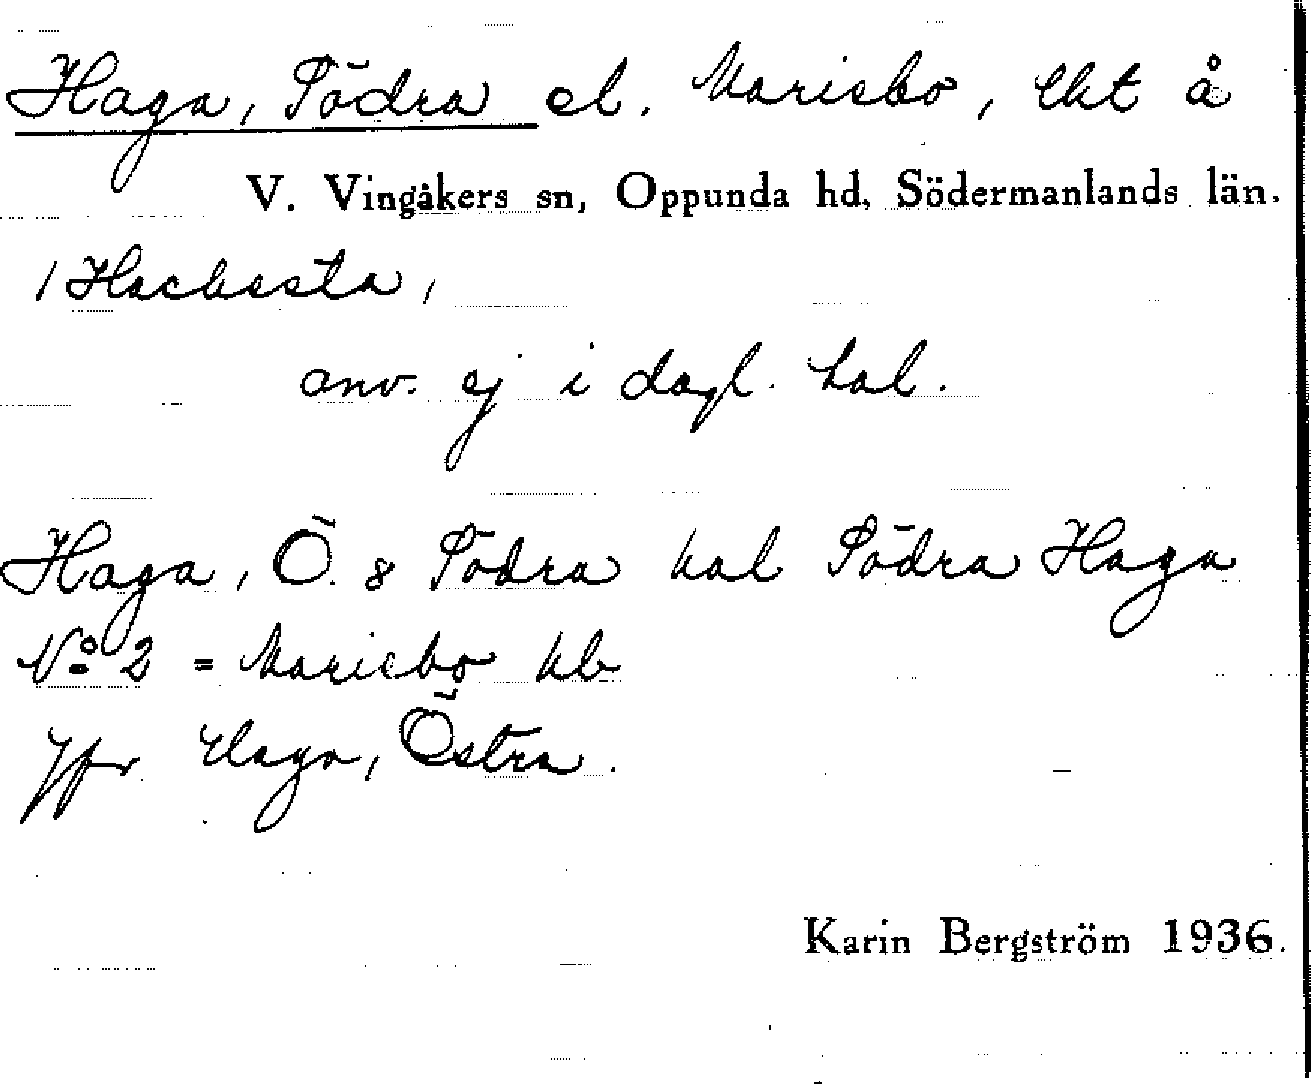 Haga, Södra el. Mariebo, lht å
V. Vingåkers sn, Oppunda hd, Södermanlands län.
/ Hacksta /
anv. ej i dagl. tal.
Haga, Ö. & Södra kal Södra Haga
No 2 = Mariebo kb
Jfr Haga, Östra.
Karin Bergström 1936.